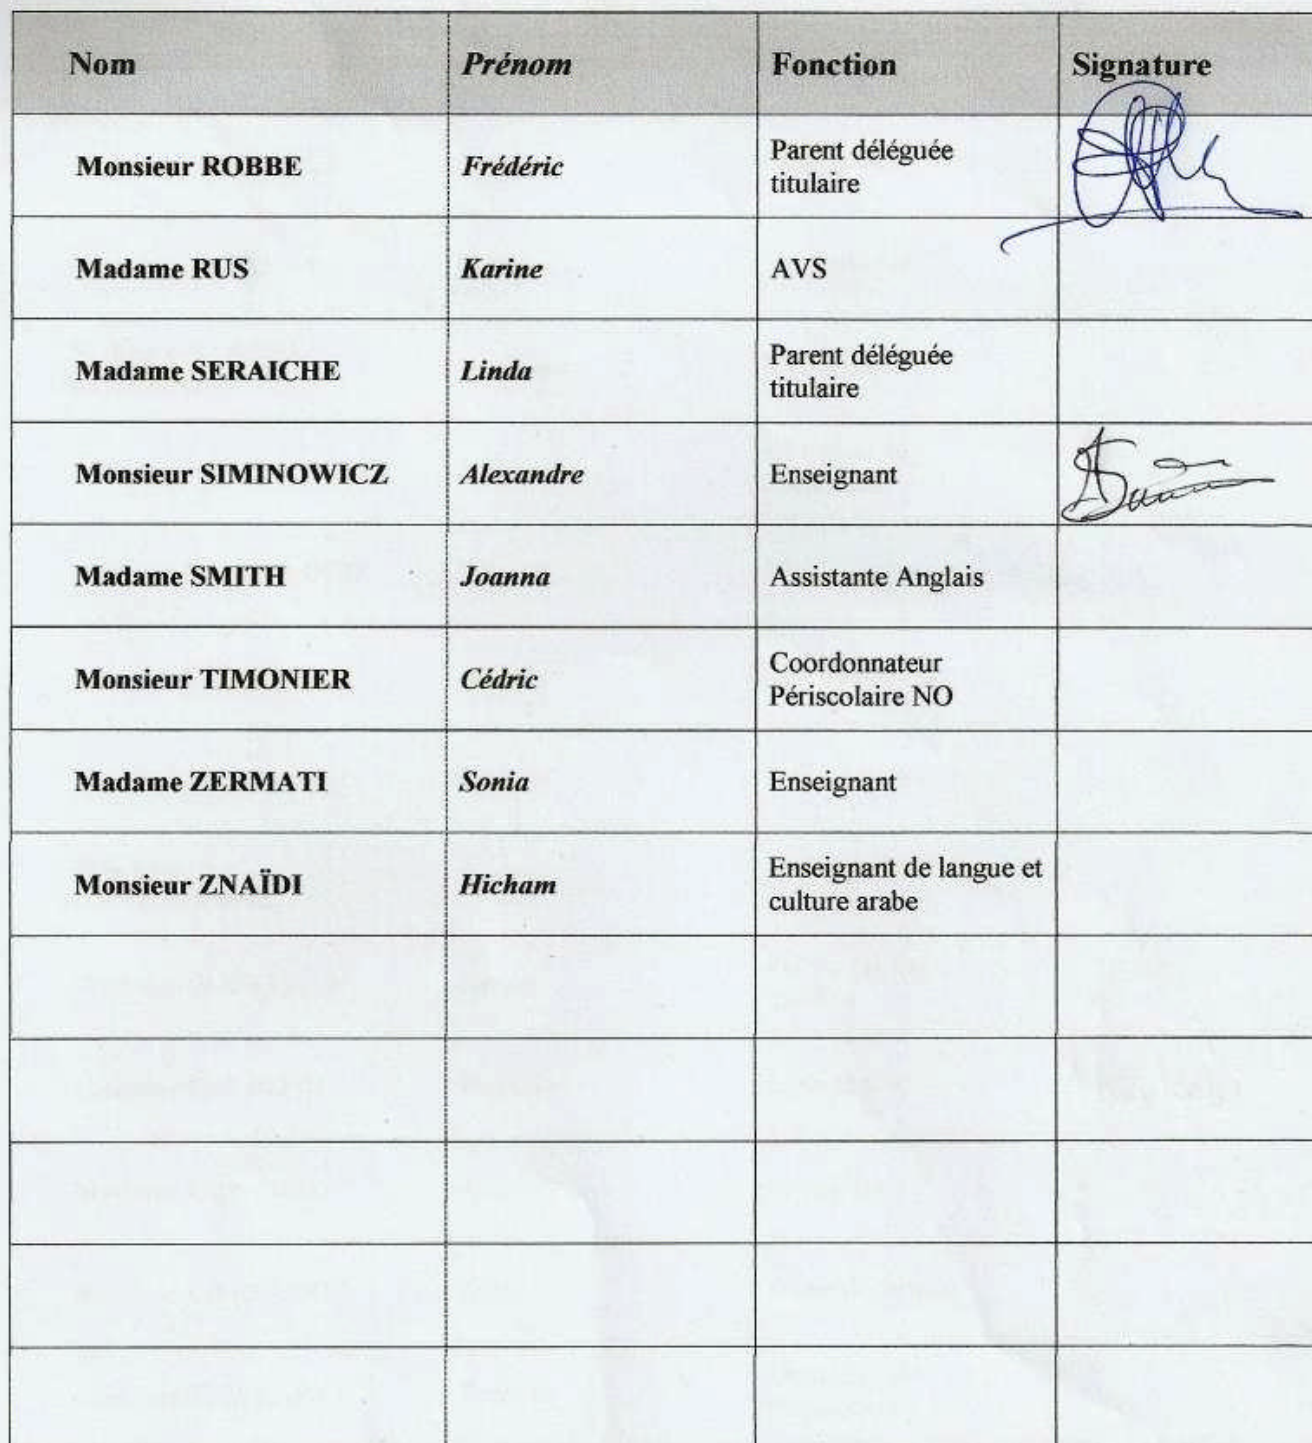 Nom Prénom Fonction Signature
Monsieur ROBBE Frédéric Parent déléguée
titulaire
Madame RUS Karine AVS
Madame SERAICHE Linda Parent déléguée
titulaire
Monsieur SIMINOWICZ Alexandre Enseignant
Madame SMITH Joanna Assistante Anglais
Monsieur TIMONIER Cédric Coordonnateur
Périscolaire NO
Madame ZERMATI Sonia Enseignant
Monsieur ZNAÏDI Hicham Enseignant de langue et
culture arabe